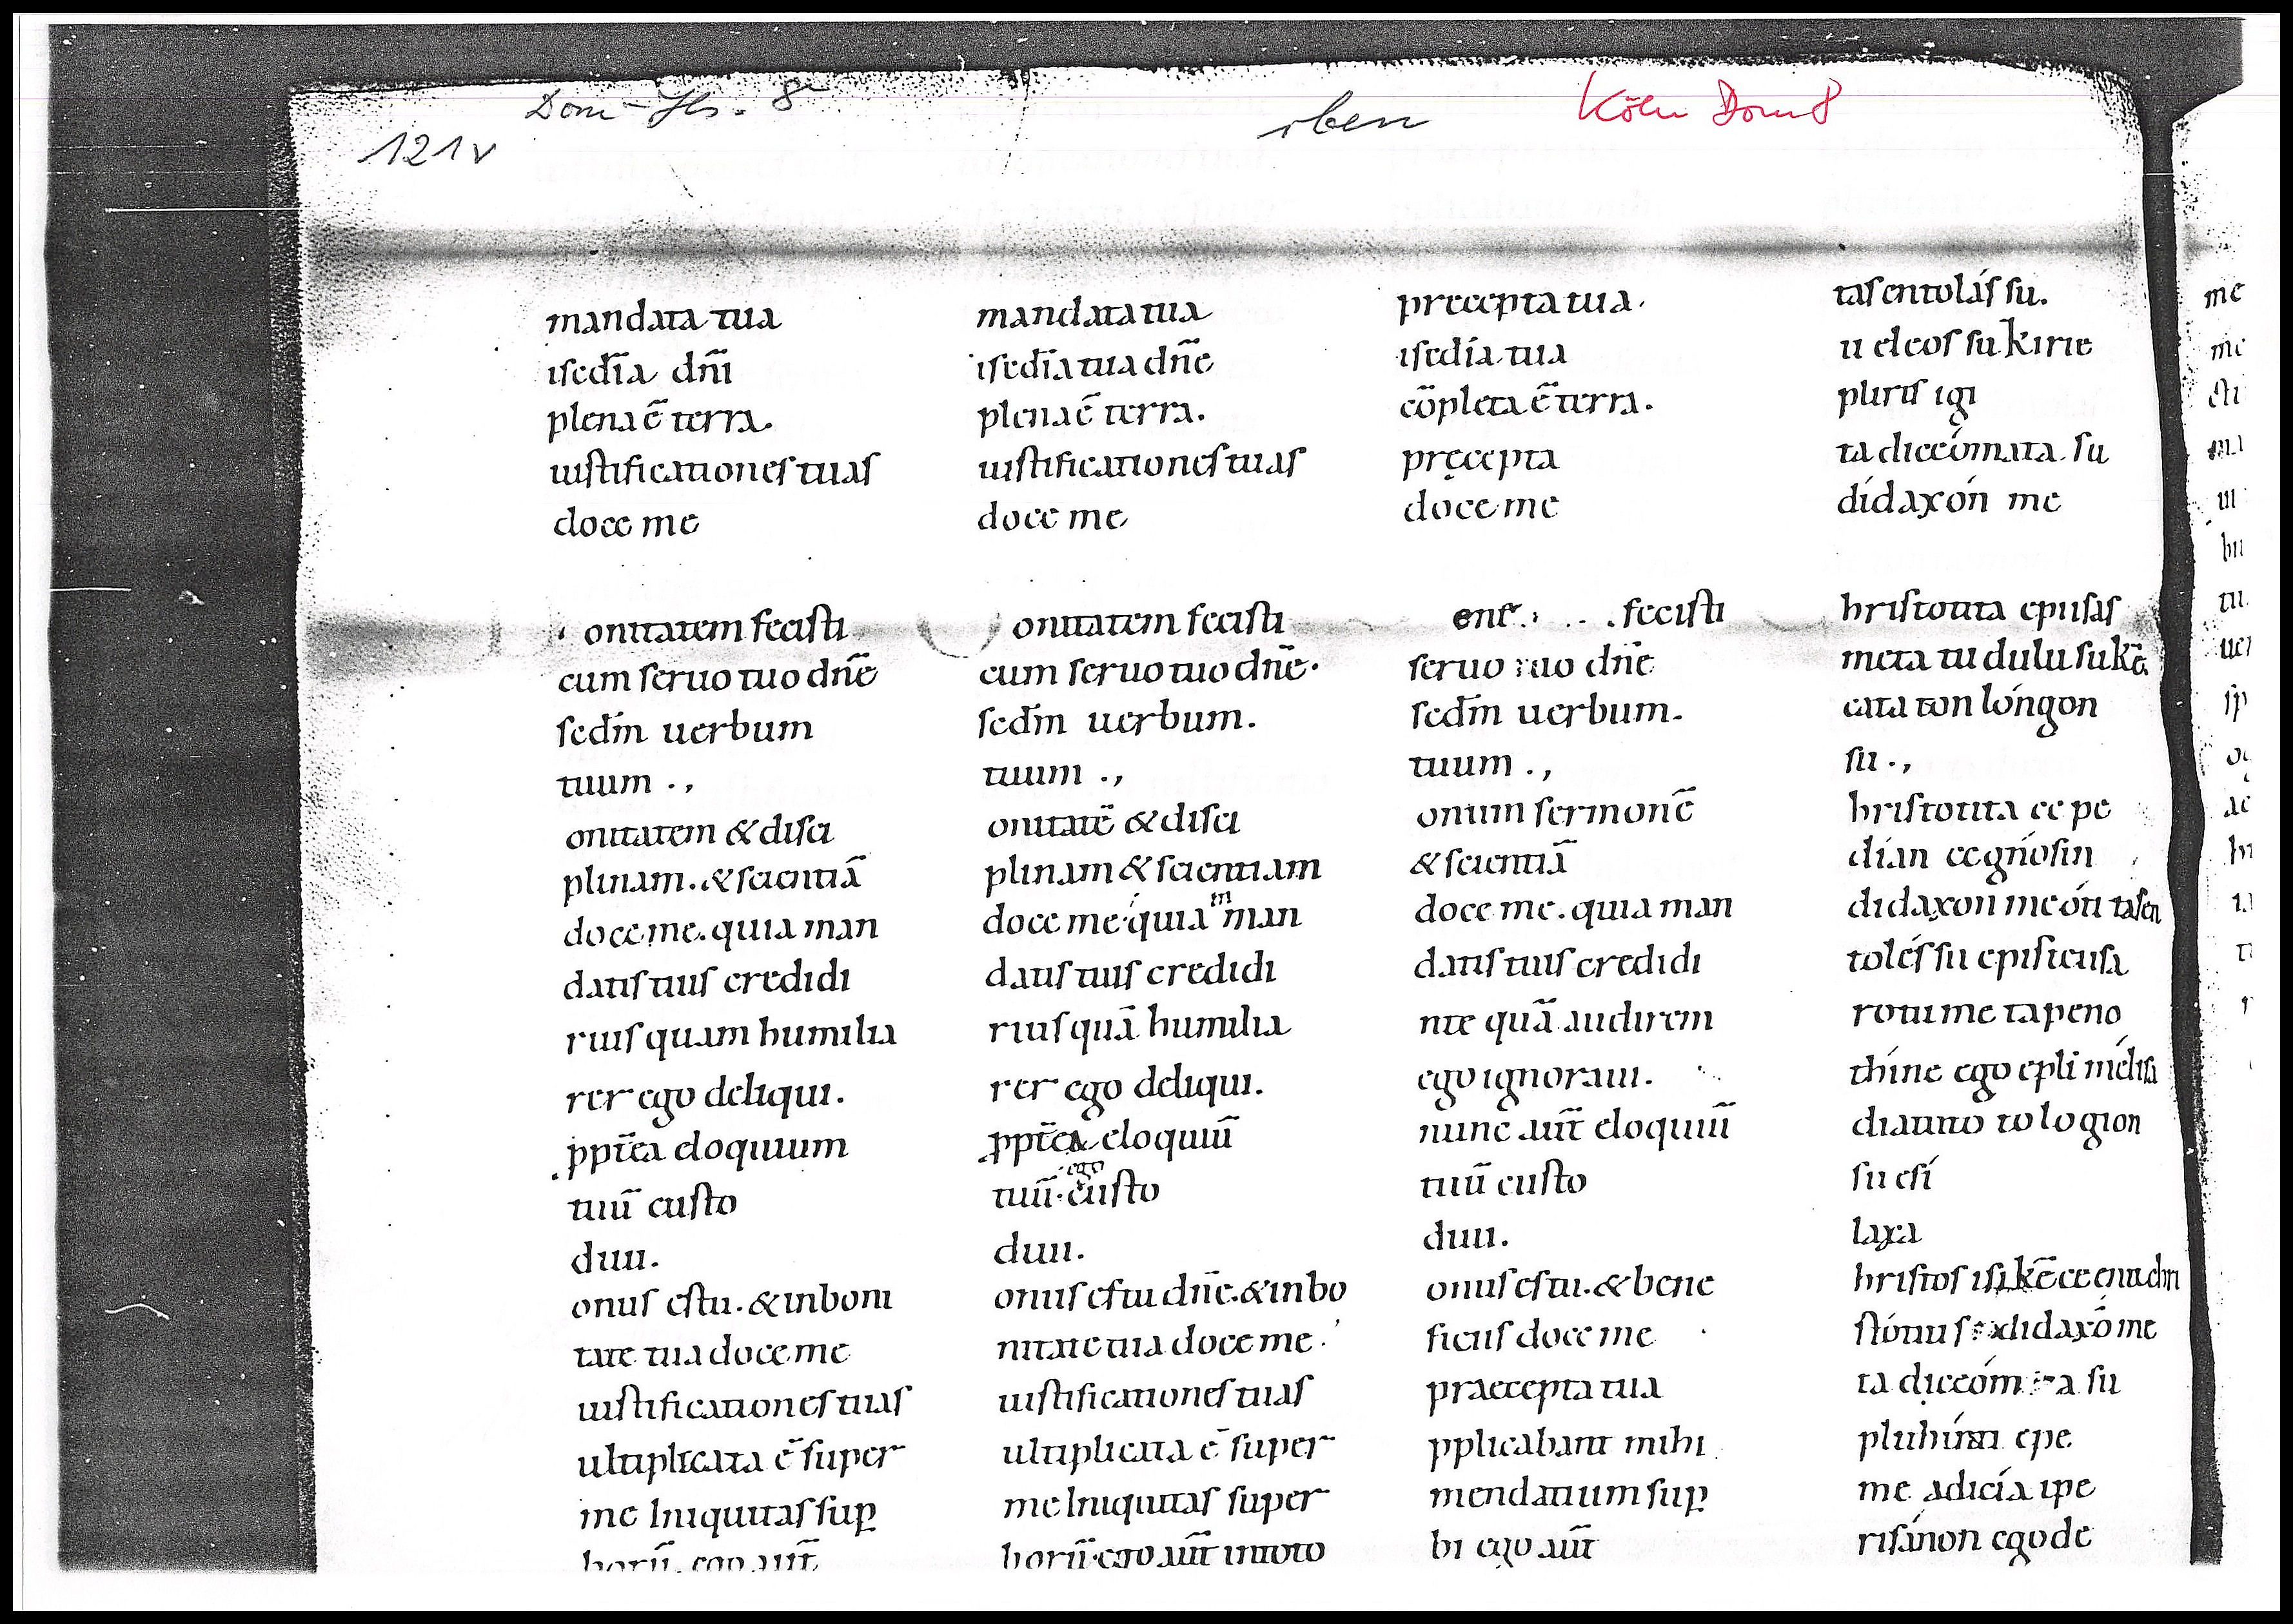 Dom-Hs. 8
121v
oben
Köln Dom 8
mandata tua
iſedīa dn̄i
plena ē terra.
iuſtificationeſ tuaſ
doce me
onitatem feciſti
cum ſeruo tuo dn̄e
ſecdm̄ uerbum
tuum .,
onitatem & diſci
plinam. & ſcientiā
doce me. quia man
datiſ tuiſ credidi
riuſ quam humilia
rer ego deliqui.
ꝓpt̄ea eloquium
tuū cuſto
diui.
onuſ eſ tu. & in boni
tate tua doce me
iuſtificationeſ tuaſ
ultiplicata ē ſuper
me Iniquitaſ ſuꝑ
horū. ego aut̄
mandata tua
iſedīa tua dn̄e
plena ē terra.
iuſtificationeſ tuaſ
doce me
onitatem feciſti
cum ſeruo tuo dn̄e.
ſecdm̄ uerbum.
tuum .,
onitatē & diſci
plinam & ſcientiam
doce me quia man
datiſ tuiſ credidi
riuſ quā humilia
rer ego deliqui.
ꝓpt̄ea eloquiū
ego
tuū. cuſto
diui.
onuſ eſ tu dn̄e. & in bo
nitate tua doce me.
iuſtificationeſ tuaſ
ultiplicata ē ſuper
me Iniquitaſ ſuper
horū. ego aut̄ in toto
precepta tua.
iſedīa tua
cōpleta ē terra.
pręcepta
doce me
feciſti
ſeruo tuo dn̄e
ſecdm̄ uerbum.
tuum .,
onum ſermonē
& ſcientiā
doce me. quia man
datiſ tuiſ credidi
nte quā audirem
ego ignoraui.
nunc aut̄ eloquiū
tuū cuſto
diui.
onuſ eſ tu. & bene
ficuſ doce me
praecepta tua
pplicabant mihi
mendatium ſuꝑ
bi ego aut̄
taſ entoláſ ſu.
u eleoſ ſu kirie
pliriſ igi
ta diceómata ſu
dídaxón me
hriſtotita epiiſaſ
meta tu dulu ſu kē
cata ton lóngon
ſu .,
hriſtotita ce pe
dían ce gnoſin
didaxon me óti taſ en
toléſ ſu epiſteuſa
rotu me tapeno
thíne ego epli mélisa
diatuto to logion
ſu efí
laxa
hriſtoſ iſi kē ce en ti chri
ſtótiti ſu didaxō me
ta diceóm a ſu
pluhínti epe
me adicía ipe
riſánon ego de